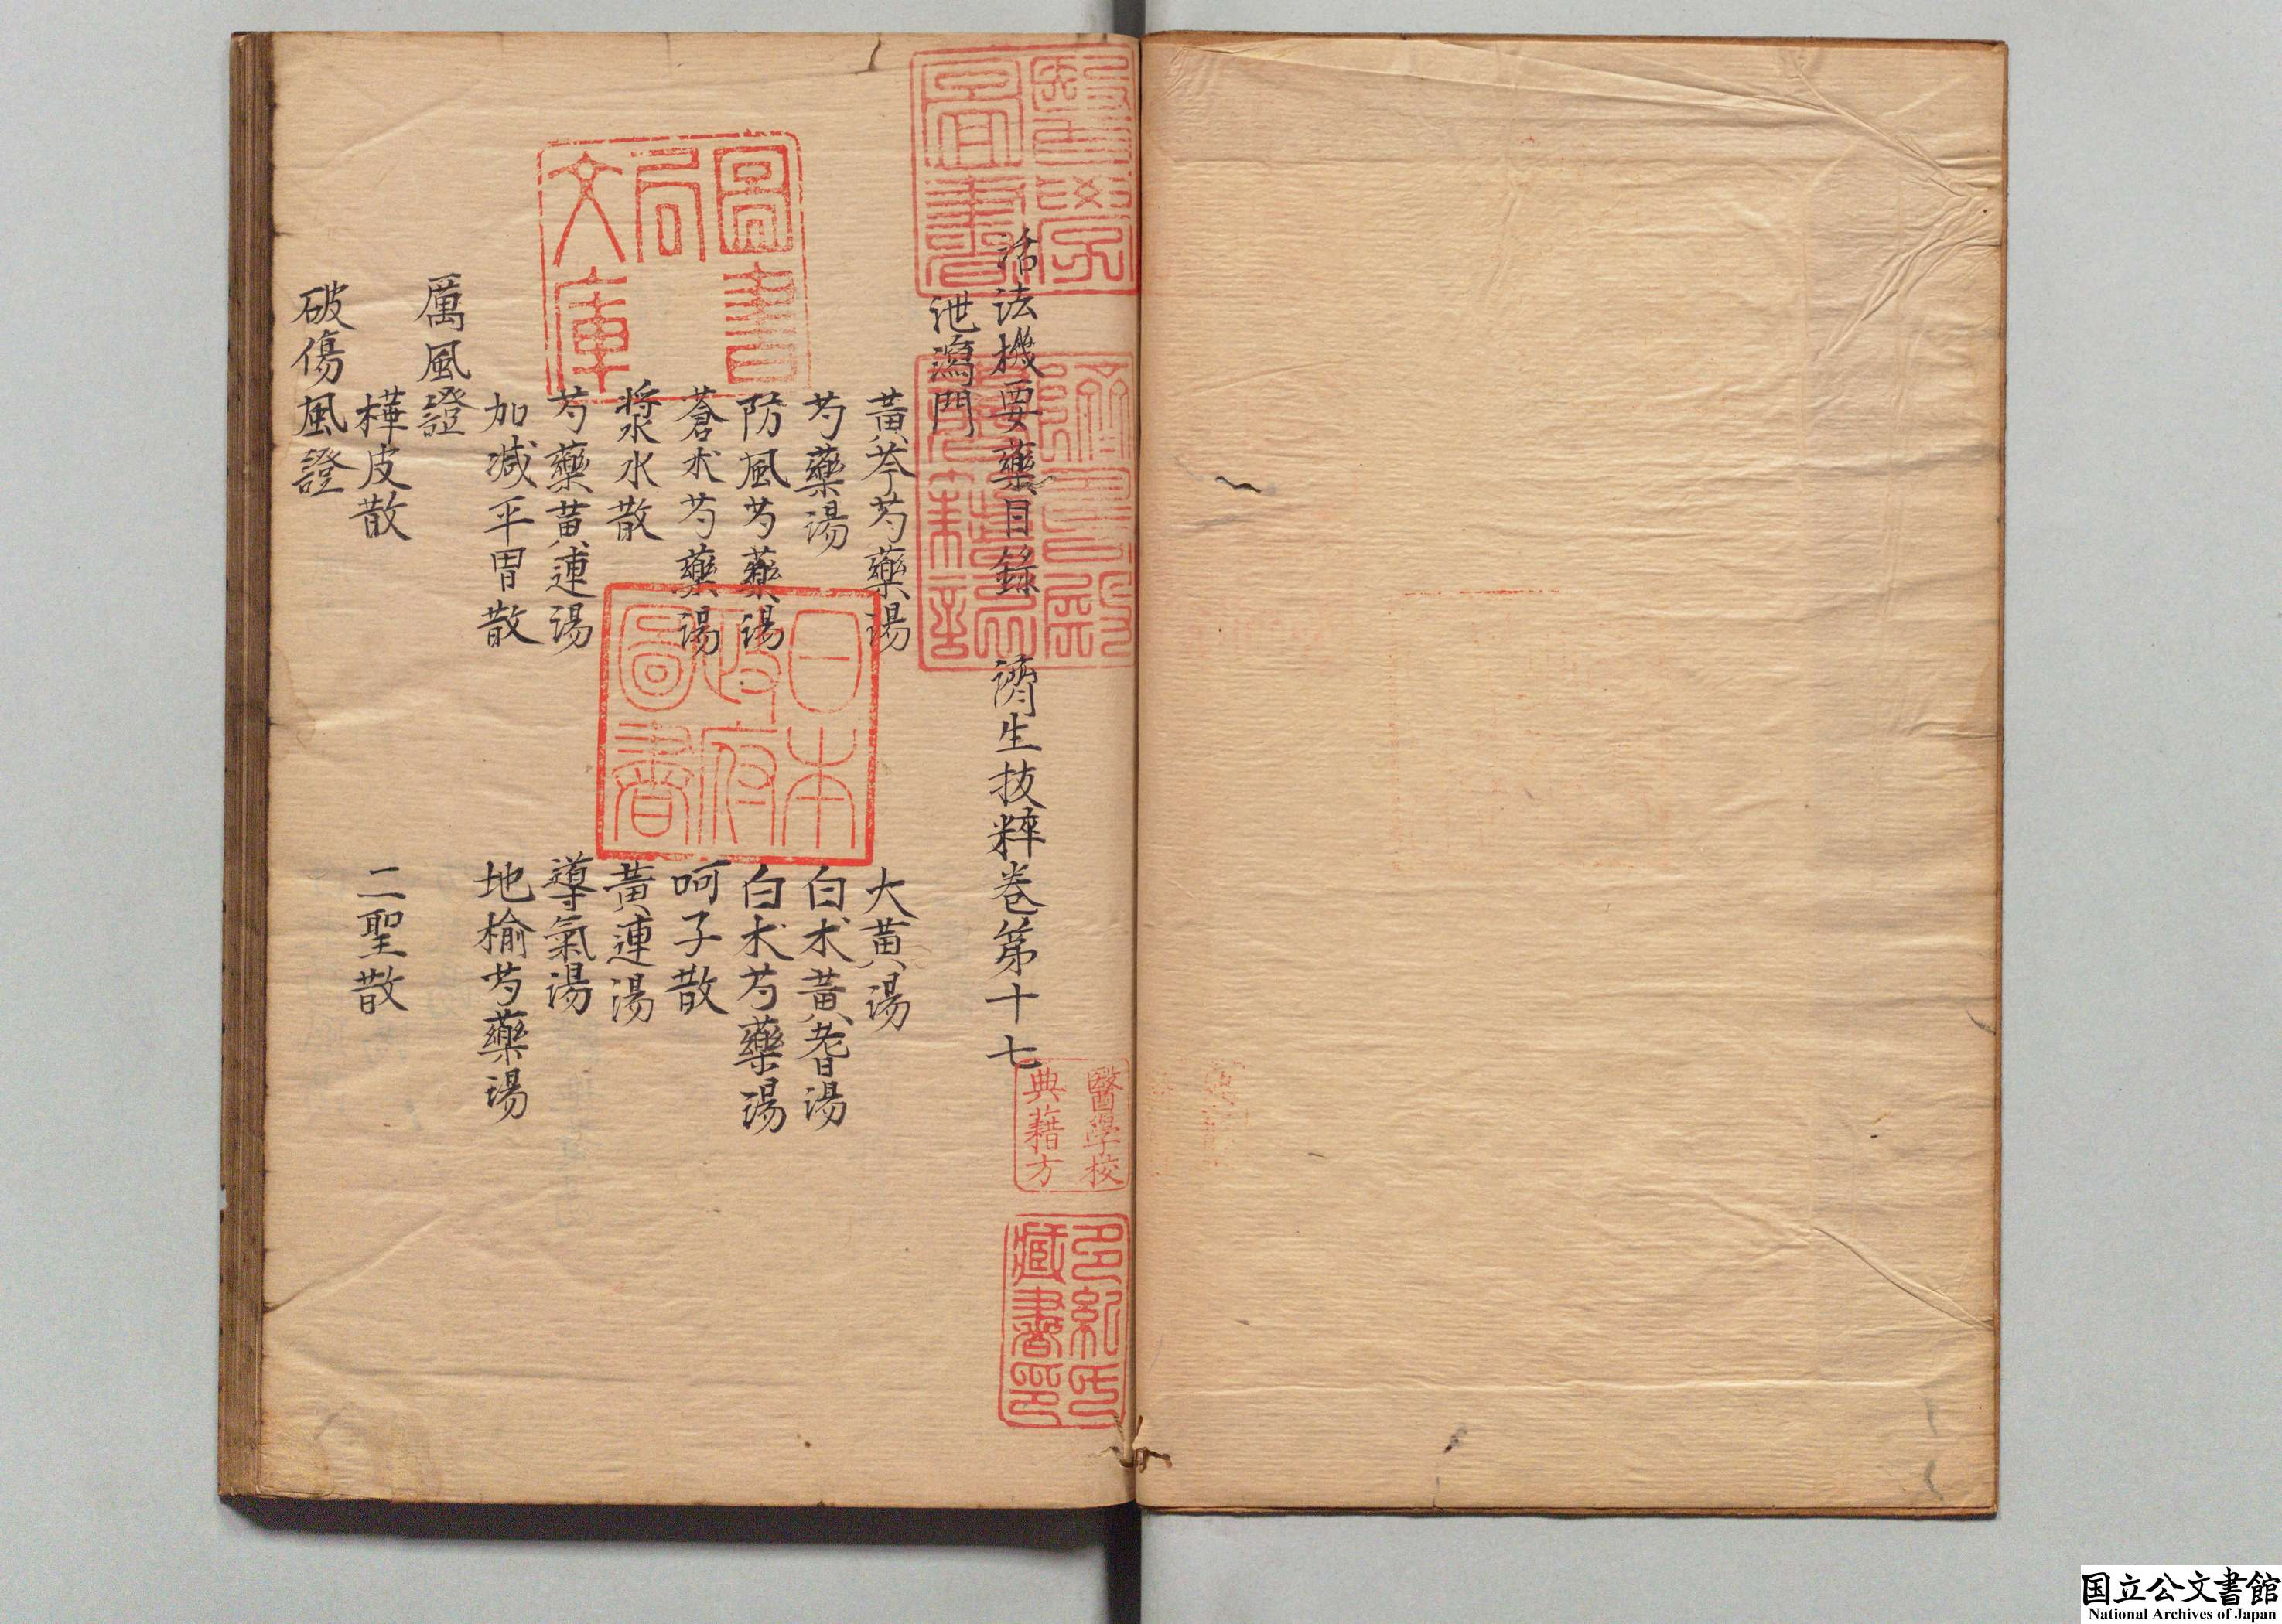 活法機要藥目錄　濟生拔粹卷第十七
泄瀉門
黃芩芍藥湯　大黃湯
芍藥湯　白朮黃耆湯
防風芍藥湯　白朮芍藥湯
蒼朮芍藥湯　呵子散
漿水散　黃連湯
芍藥黃連湯　導氣湯
加減平胃散　地榆芍藥湯
厲風證
樺皮散　二聖散
破傷風證
醫學圖書
躋壽殿書籍記
圖書局文庫
日本政府圖書
醫學校典藉方
多紀氏藏書印
国立公文書館
National Archives of Japan